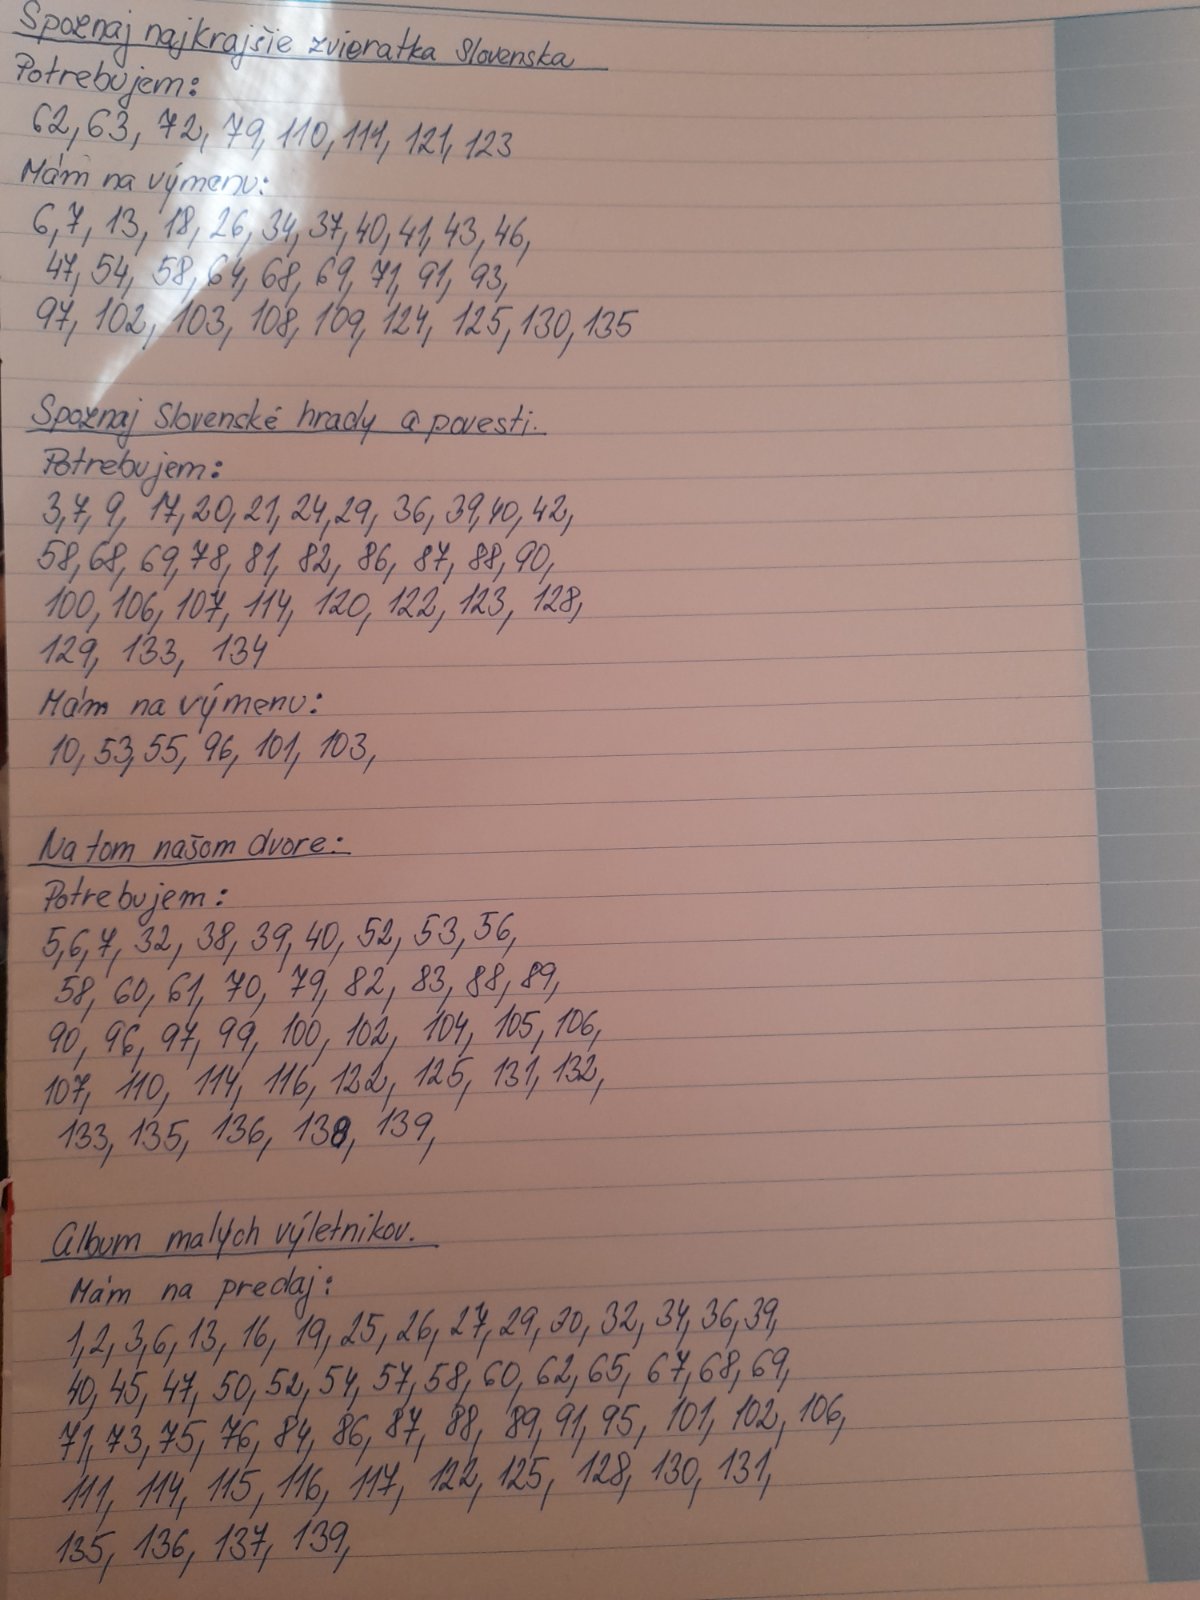 Spoznaj najkrajšie zvieratka Slovenska
Potrebujem:
62, 63, 72, 79, 110, 111, 121, 123
Mám na výmenu:
6, 7, 13, 18, 26, 34, 37, 40, 41, 43, 46,
47, 54, 58, 64, 68, 69, 71, 91, 93,
97, 102, 103, 108, 109, 124, 125, 130, 135
Spoznaj Slovenské hrady a povesti.
Potrebujem:
3, 7, 9, 17, 20, 21, 24, 29, 36, 39, 40, 42,
58, 68, 69, 78, 81, 82, 86, 87, 88, 90,
100, 106, 107, 114, 120, 122, 123, 128,
129, 133, 134
Mám na výmenu:
10, 53, 55, 96, 101, 103,
Na tom našom dvore:
Potrebujem:
5, 6, 7, 32, 38, 39, 40, 52, 53, 56,
58, 60, 61, 70, 79, 82, 83, 88, 89,
90, 96, 97, 99, 100, 102, 104, 105, 106,
107, 110, 114, 116, 122, 125, 131, 132,
133, 135, 136, 138, 139,
Album malých výletnikov.
Mám na predaj:
1, 2, 3, 6, 13, 16, 19, 25, 26, 27, 29, 30, 32, 34, 36, 39,
40, 45, 47, 50, 52, 54, 57, 58, 60, 62, 65, 67, 68, 69,
71, 73, 75, 76, 84, 86, 87, 88, 89, 91, 95, 101, 102, 106,
111, 114, 115, 116, 117, 122, 125, 128, 130, 131,
135, 136, 137, 139,